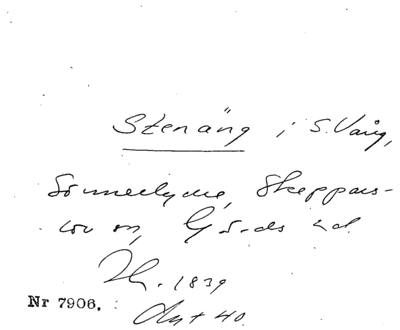 Stenäng i S. Vång,
Sönnerlyckne, Skeppars-
lov sn, Gärds hd.
Th. 1839
Nr 7906.
Ant 40.